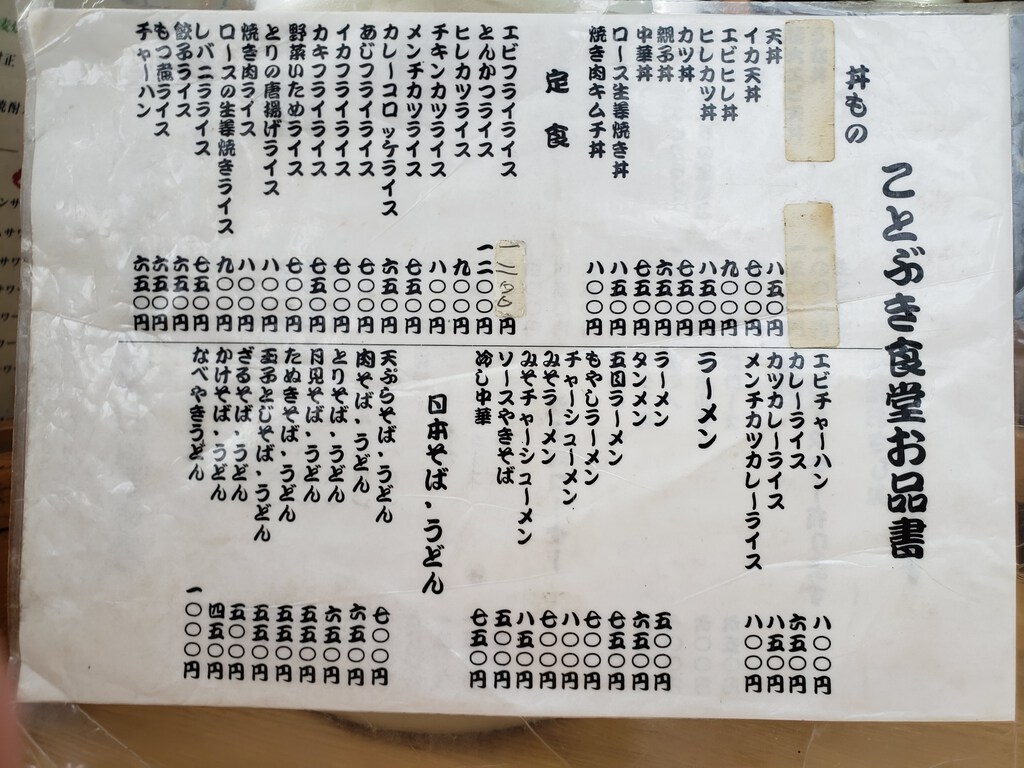 ことぶき食堂お品書
丼もの
天丼 八五〇円
イカ天丼 七〇〇円
エビヒレ丼 九〇〇円
ヒレカツ丼 八五〇円
カツ丼 七五〇円
親子丼 六五〇円
中華丼 七五〇円
ロース生姜焼き丼 八五〇円
焼き肉キムチ丼 八〇〇円
定食
エビフライライス 一二〇〇円
とんかつライス 一二〇〇円
ヒレカツライス 九〇〇円
チキンカツライス 八〇〇円
メンチカツライス 七五〇円
カレーコロッケライス 六五〇円
あじフライライス 七〇〇円
イカフライライス 七〇〇円
カキフライライス 七五〇円
野菜いためライス 七〇〇円
とりの唐揚げライス 八〇〇円
焼き肉ライス 八〇〇円
ロースの生姜焼きライス 九〇〇円
レバニラライス 七五〇円
餃子ライス 六五〇円
もつ煮ライス 六五〇円
チャーハン 六五〇円
エビチャーハン 八〇〇円
カレーライス 六五〇円
カツカレーライス 八五〇円
メンチカツカレーライス 八〇〇円
ラーメン
ラーメン 五〇〇円
タンメン 六五〇円
五目ラーメン 七五〇円
もやしラーメン 七〇〇円
チャーシューメン 八〇〇円
みそラーメン 七〇〇円
みそチャーシューメン 八五〇円
ソースやきそば 五〇〇円
冷し中華 七五〇円
日本そば・うどん
天ぷらそば・うどん 七〇〇円
肉そば・うどん 六五〇円
とりそば・うどん 六五〇円
月見そば・うどん 五五〇円
たぬきそば・うどん 五五〇円
玉子とじそば・うどん 五五〇円
ざるそば・うどん 五〇〇円
かけそば・うどん 四五〇円
なべやきうどん 一〇〇〇円